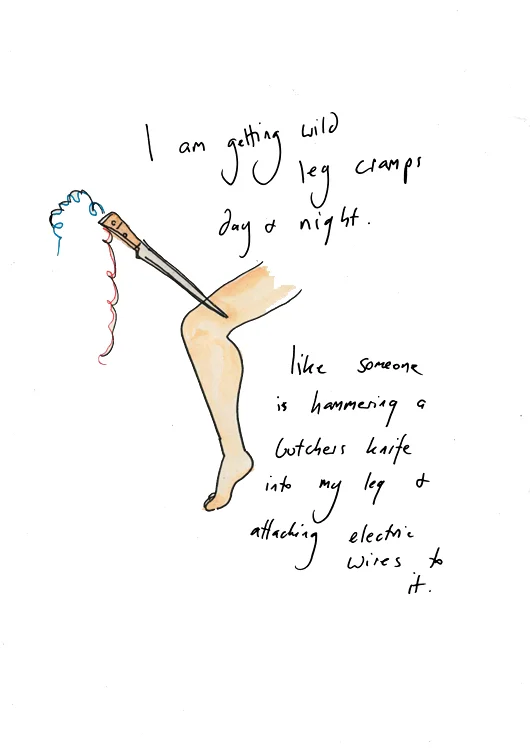 I am getting wild
leg cramps
day & night.
like someone
is hammering a
butchers knife
into my leg &
attaching electric
wires to
it.